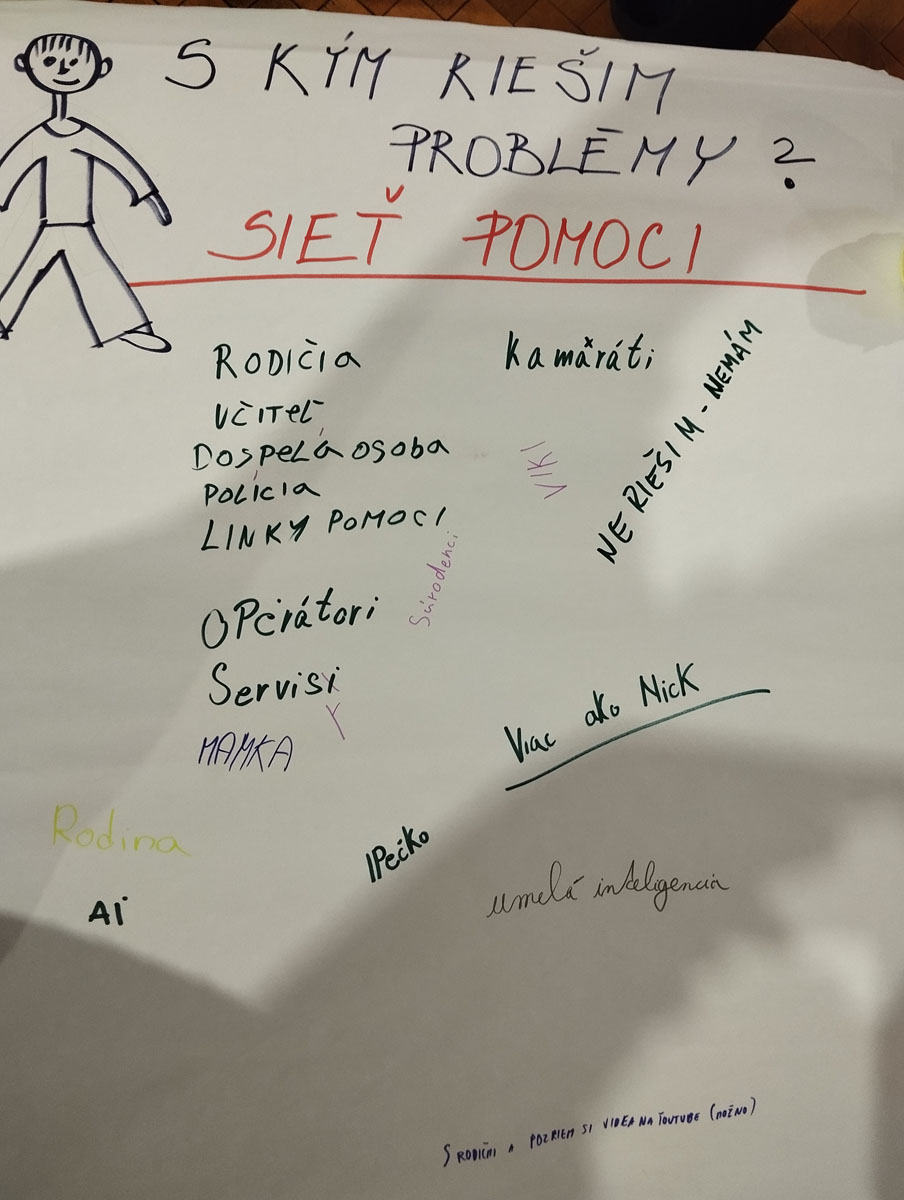 S KÝM RIEŠIM
PROBLÉMY?
SIEŤ POMOCI
RODIČIA
Kamaráti
NERIEŠIM - NEMÁM
UČITEĽ
DOSPELÁ OSOBA
VIKI
POLÍCIA
LINKY POMOCI
Súrodenci
OPerátori
Servisi
Y
MAMKA
Viac ako Nick
Rodina
IPečko
umelá inteligencia
AI
S RODIČMI A POZRIEM SI VIDEA NA YOUTUBE (MOŽNO)